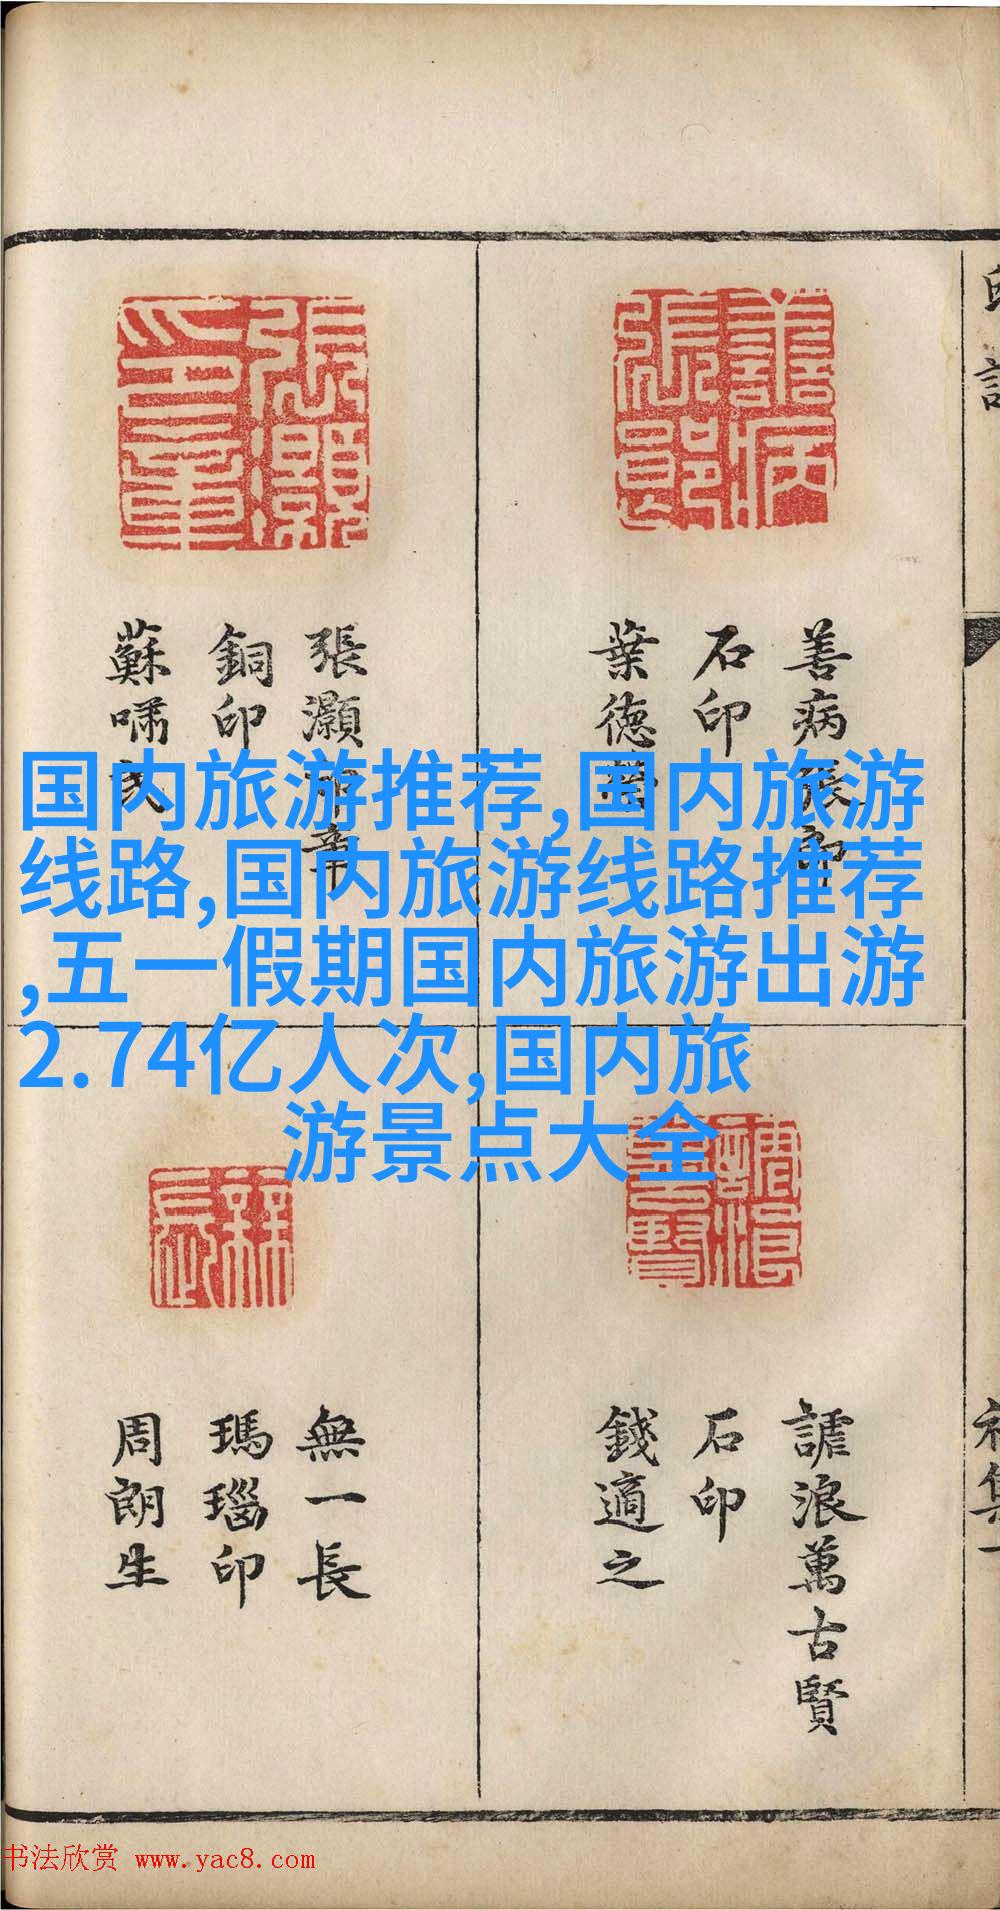 善病張郎
石印
葉德榮
張灝印章
銅印
蘇嘯民
国内旅游推荐,国内旅游
线路,国内旅游线路推荐
,五一假期国内旅游出游
2.74亿人次,国内旅
游景点大全
謔浪萬古賢
石印
錢適之
無一長
瑪瑙印
周朗生
初集一
书法欣赏 www.yac8.com